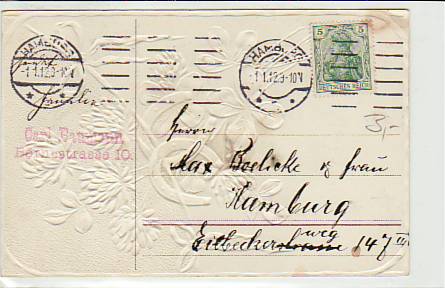 HAMBURG
-1.1.12.9-10V
HAMBURG
-1.1.12.9-10V
5 5
DEUTSCHES REICH
3,-
Carl
strasse 10.
Herrn
Max Boelicke & Frau
Hamburg
Eilbeckerweg 147 III